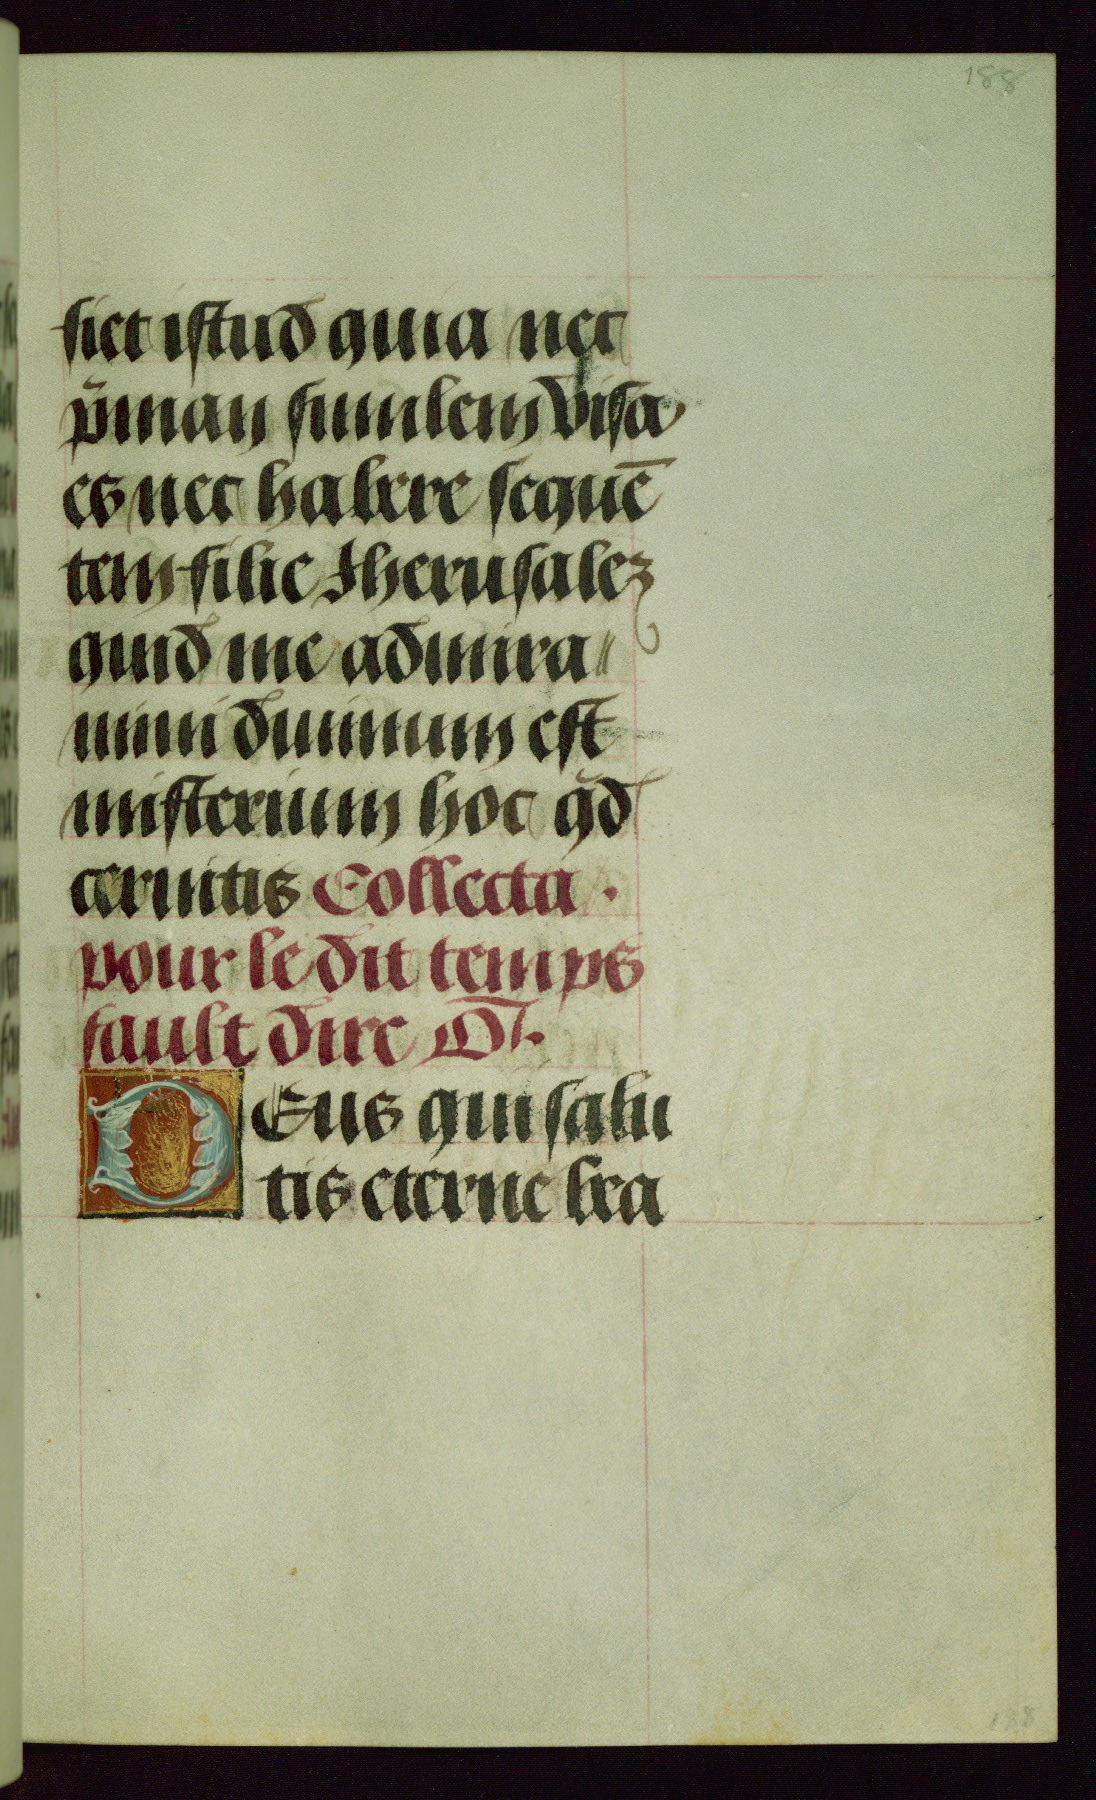 188
fiet istud quia nec
p̃mam similem visa
es nec habere sequē
tem filie Jherusalez
quid me admira
mini divinum est
misterium hoc qd̃
cernitis Collecta .
pour le dit temps
fault dire Or̄.
DEus qui salu
tis eterne bea
188